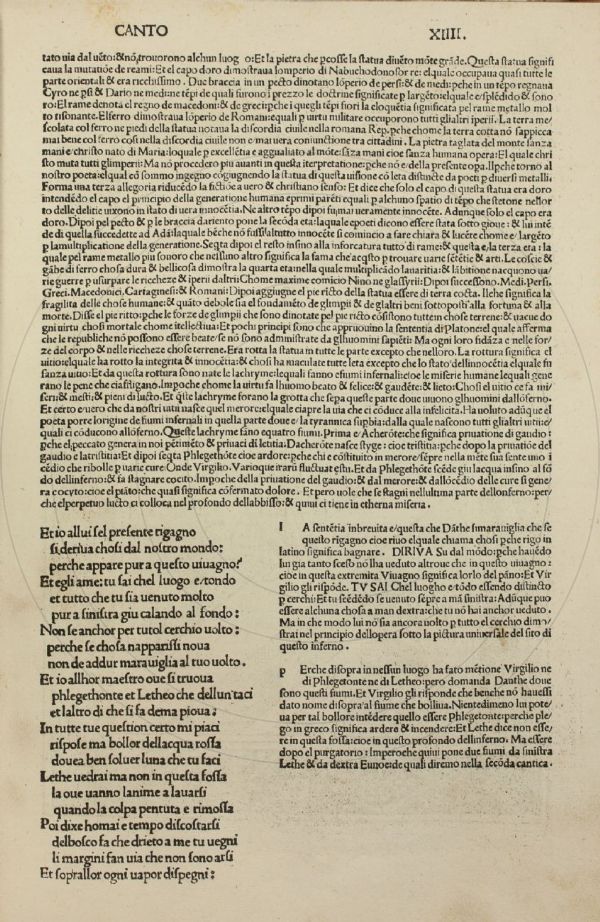 CANTO XIIII.
tato uia dal uẽto:&nõ trouorono alchun luog o:Et la pietra che pcosse la statua diuẽto mõte grãde.Questa statua signifi
caua la mutatiõe de reami:Et el capo doro dimostraua lomperio di Nabuchodonosor re:elquale occupaua quasi tutte le
parte orientali & era ricchissimo. Due braccia in un pecto dinotano lõperio de persi:& de medi:pche in un tẽpo regnaua
Cyro ne psi & Dario ne medi:ne tẽpi de quali furono ĩ prezzo le doctrine significate p largẽto:elquale e/splẽdido & sono
ro:El rame denota el regno de macedoni:& de greci:pche i quegli tẽpi fiori la eloquẽtia significata pel rame metallo mol
to risonante.Elferro dimostraua lõperio de Romani:equali p uirtu militare occuporono tutti glialtri iperii. La terra me/
scolata col ferro ne piedi della statua notaua la discordia ciuile nella romana Rep.pche chome la terra cotta nõ sappicca
mai bene col ferro cosi nella discordia ciuile non e/mai uera coniunctione tra cittadini. La pietra taglata del monte sanza
mani e/christo nato di Maria:loquale p excellẽtia e agguaglato al mõte:sãza mani cioe sanza humana opera:El quale chri
sto muta tutti glimperii: Ma nõ procedero piu auanti in questa iterpretatione:pche nõ e/della presente opa.Ilpche torno al
nostro poeta:elqual cõ sommo ingegno cõgiugnendo la statua di questa uisione cõ leta distincte da poeti p diuersi metalli.
Forma una terza allegoria riducẽdo la fictiõe a uero & christiano senso: Et dice che solo el capo di questa statua era doro
intendẽdo el capo el principio della generatione humana e primi parẽti equali p alchuno spatio di tẽpo che stetono nellor
to delle delitie uixono in stato di uera innocẽtia. Ne altro tẽpo dipoi fu mai ueramente innocẽte. Adunque solo el capo era
doro.Dipoi pel pecto & p le braccia dariento pone la secõda eta:laquale epoeti dicono essere stata sotto gioue: & lui intẽ
de di quella succedette ad Adã:laquale bẽche nõ fussi altutto innocẽte si comincio a fare chiara & lucẽte chome e/largẽto
p la multiplicatione della generatione.Segta dipoi el resto insino alla inforcatura tutto di rame:& questa e/la terza eta: la
quale pel rame metallo piu sonoro che nessuno altro significa la fama che acq̃sto p trouare uarie sẽtẽtie & arti. Le coscie &
gãbe di ferro chosa dura & bellicosa dimostra la quarta eta:nella quale multiplicãdo lauaritia:& lãbitione nacquono ua/
rie guerre p usurpare le riccheze & iperii daltri:Chome maxime comicio Nino ne glassyrii: Dipoi successono. Medi.Persi.
Greci.Macedonici. Cartaginesi.& Romani:Dipoi aggiugne el pie ricto della statua essere di terra cocta. Ilche significa la
fragilita delle chose humane:& quãto debole sia el fondamẽto de glimpii & de glaltri beni sottoposti alla fortuna & alla
morte.Disse el pie ritto:pche le forze de glimpii che sono dinotate pel pie ricto cõsistono tuttem chose terrene:& uacue do
gni uirtu chosi mortale chome itellectiua: Et pochi principi sono che appruouino la sententia di Platone: el quale afferma
che le republiche nõ possono essere beate/se nõ sono administrate da glhuomini sapiẽti: Ma ogni loro fidãza e nelle for/
ze del corpo & nelle riccheze chose terrene.Era rotta la statua in tutte le parte excepto che nelloro. La rottura significa el
uitio:elquale ha rotto la integrita & innocẽtia:& chosi ha maculate tutte leta excepto che lo stato dellinnocẽtia elquale fu
sanza uitio:Et da questa rottura sono nate le lachryme:lequali fanno efiumi infernali:cioe le miserie humane:lequali gene
rano le pene che ciaffligano.Impoche chome la uirtu fa lhuomo beato & felice:& gaudẽte:& lieto: Chosi el uitio ce fa mi/
seri:& mesti:& pieni di lucto.Et q̃ste lachryme forano la grotta che sepa queste parte doue uiuono glhuomini dallõferno.
Et certo e/uero che da nostri uitii nasce quel merore:elquale ciapre la uia che ci cõduce alla infelicita.Ha uoluto adũque el
poeta porre lorigine de fiumi infernali in quella parte doue e/la tyrannica supbia:dalla quale nascono tutti glialtri uitii:e/
quali ci cõducono allõferno.Queste lachryme fano equatro fiumi.Prima e/Acherõte:che significa priuatione di gaudio:
pche el peccato genera in noi pẽtimẽto & priuaci di letitia.Dacherõte nasce stygie:cioe tristitia:pche dopo la priuatiõe del
gaudio e lattristitia:Et dipoi segta Phlegethõte cioe ardore:pche chi e cõstituito in merore/sẽpre nella mẽte sua sente uno i
cẽdio che ribolle p uarie cure:Onde Virgilio. Varioque irarũ fluctuat estu.Et da Phlegethõte scẽde giu lacqua insino al fõ
do dellinferno:& fa stagnare cocito.Impoche della priuatione del gaudio:& dal merore:& dallõcẽdio delle cure si gene/
ra cocyto:cioe el piãto:che quasi significa cõfermato dolore. Et pero uole che se stagni nellultima parte dellonferno:per/
che elperpetuo lucto ci colloca nel profondo dellabbisso:& quiui ci tiene in etherna miseria.
Et io allui sel presente rigagno
si deriua chosi dal nostro mondo:
perche appare pur a questo uiuagno?
Et egli ame:tu sai chel luogo e/tondo
et tutto che tu sia uenuto molto
pur a sinistra giu calando al fondo:
Non se anchor per tutol cerchio uolto:
perche se chosa napparissi noua
non de addur marauiglia al tuo uolto.
Et io allhor maestro oue si truoua
phlegethonte et Letheo che dellun taci
et laltro di che si fa dema pioua:
In tutte tue question certo mi piaci
rispose ma bollor dellacqua rossa
douea ben soluer luna che tu faci
Lethe uedrai ma non in questa fossa
la oue uanno lanime a lauarsi
quando la colpa pentuta e rimossa
Poi dixe homai e tempo discostarsi
delbosco fa che drieto a me tu uegni
li margini fan uia che non sono arsi
Et soprallor ogni uapor dispegni:
I A sentẽtia inbreuita e/questa che Dãthe simarauiglia che se
questo rigagno cioe riuo elquale chiama chosi pche rigo in
latino significa bagnare. DIRIVA Su dal mõdo:pche hauẽdo
lui gia tanto scesto nõ lha ueduto altroue che in questo uiuagno:
cioe in questa extremita Viuagno significa lorlo del pãno:Et Vir
gilio gli rispõde. TV SAI Chel luogho e tõdo essendo distincto
p cerchi:Et tu scẽdẽdo se uenuto sẽpre a mã sinistra:Adũque puo
essere alchuna chosa a man dextra:che tu nõ hai anchor ueduto.
Ma in che modo lui nõ sia ancora uolto p tutto el cerchio dimo/
strai nel principio dellopera sotto la pictura uniuersale del sito di
questo inferno.
p Erche disopra in nessun luogo ha fato mẽtione Virgilio ne
di Phlegetonte ne di Letheo:pero domanda Danthe doue
sono questi fiumi.Et Virgilio gli risponde che benche nõ hauessi
dato nome disopra al fiume che bolliua.Nientedimeno lui pote/
ua per tal bollore intẽdere quello essere Phlegetonte:perche phle/
go in greco significa ardere & incendere:Et Lethe dice non esse/
re in questa fossa:cioe in questo profondo dellinferno.Ma essere
dapoi el purgatorio : Imperoche quiui pone due fiumi da sinistra
Lethe & da dextra Eunoe:de quali diremo nella secõda cantica.